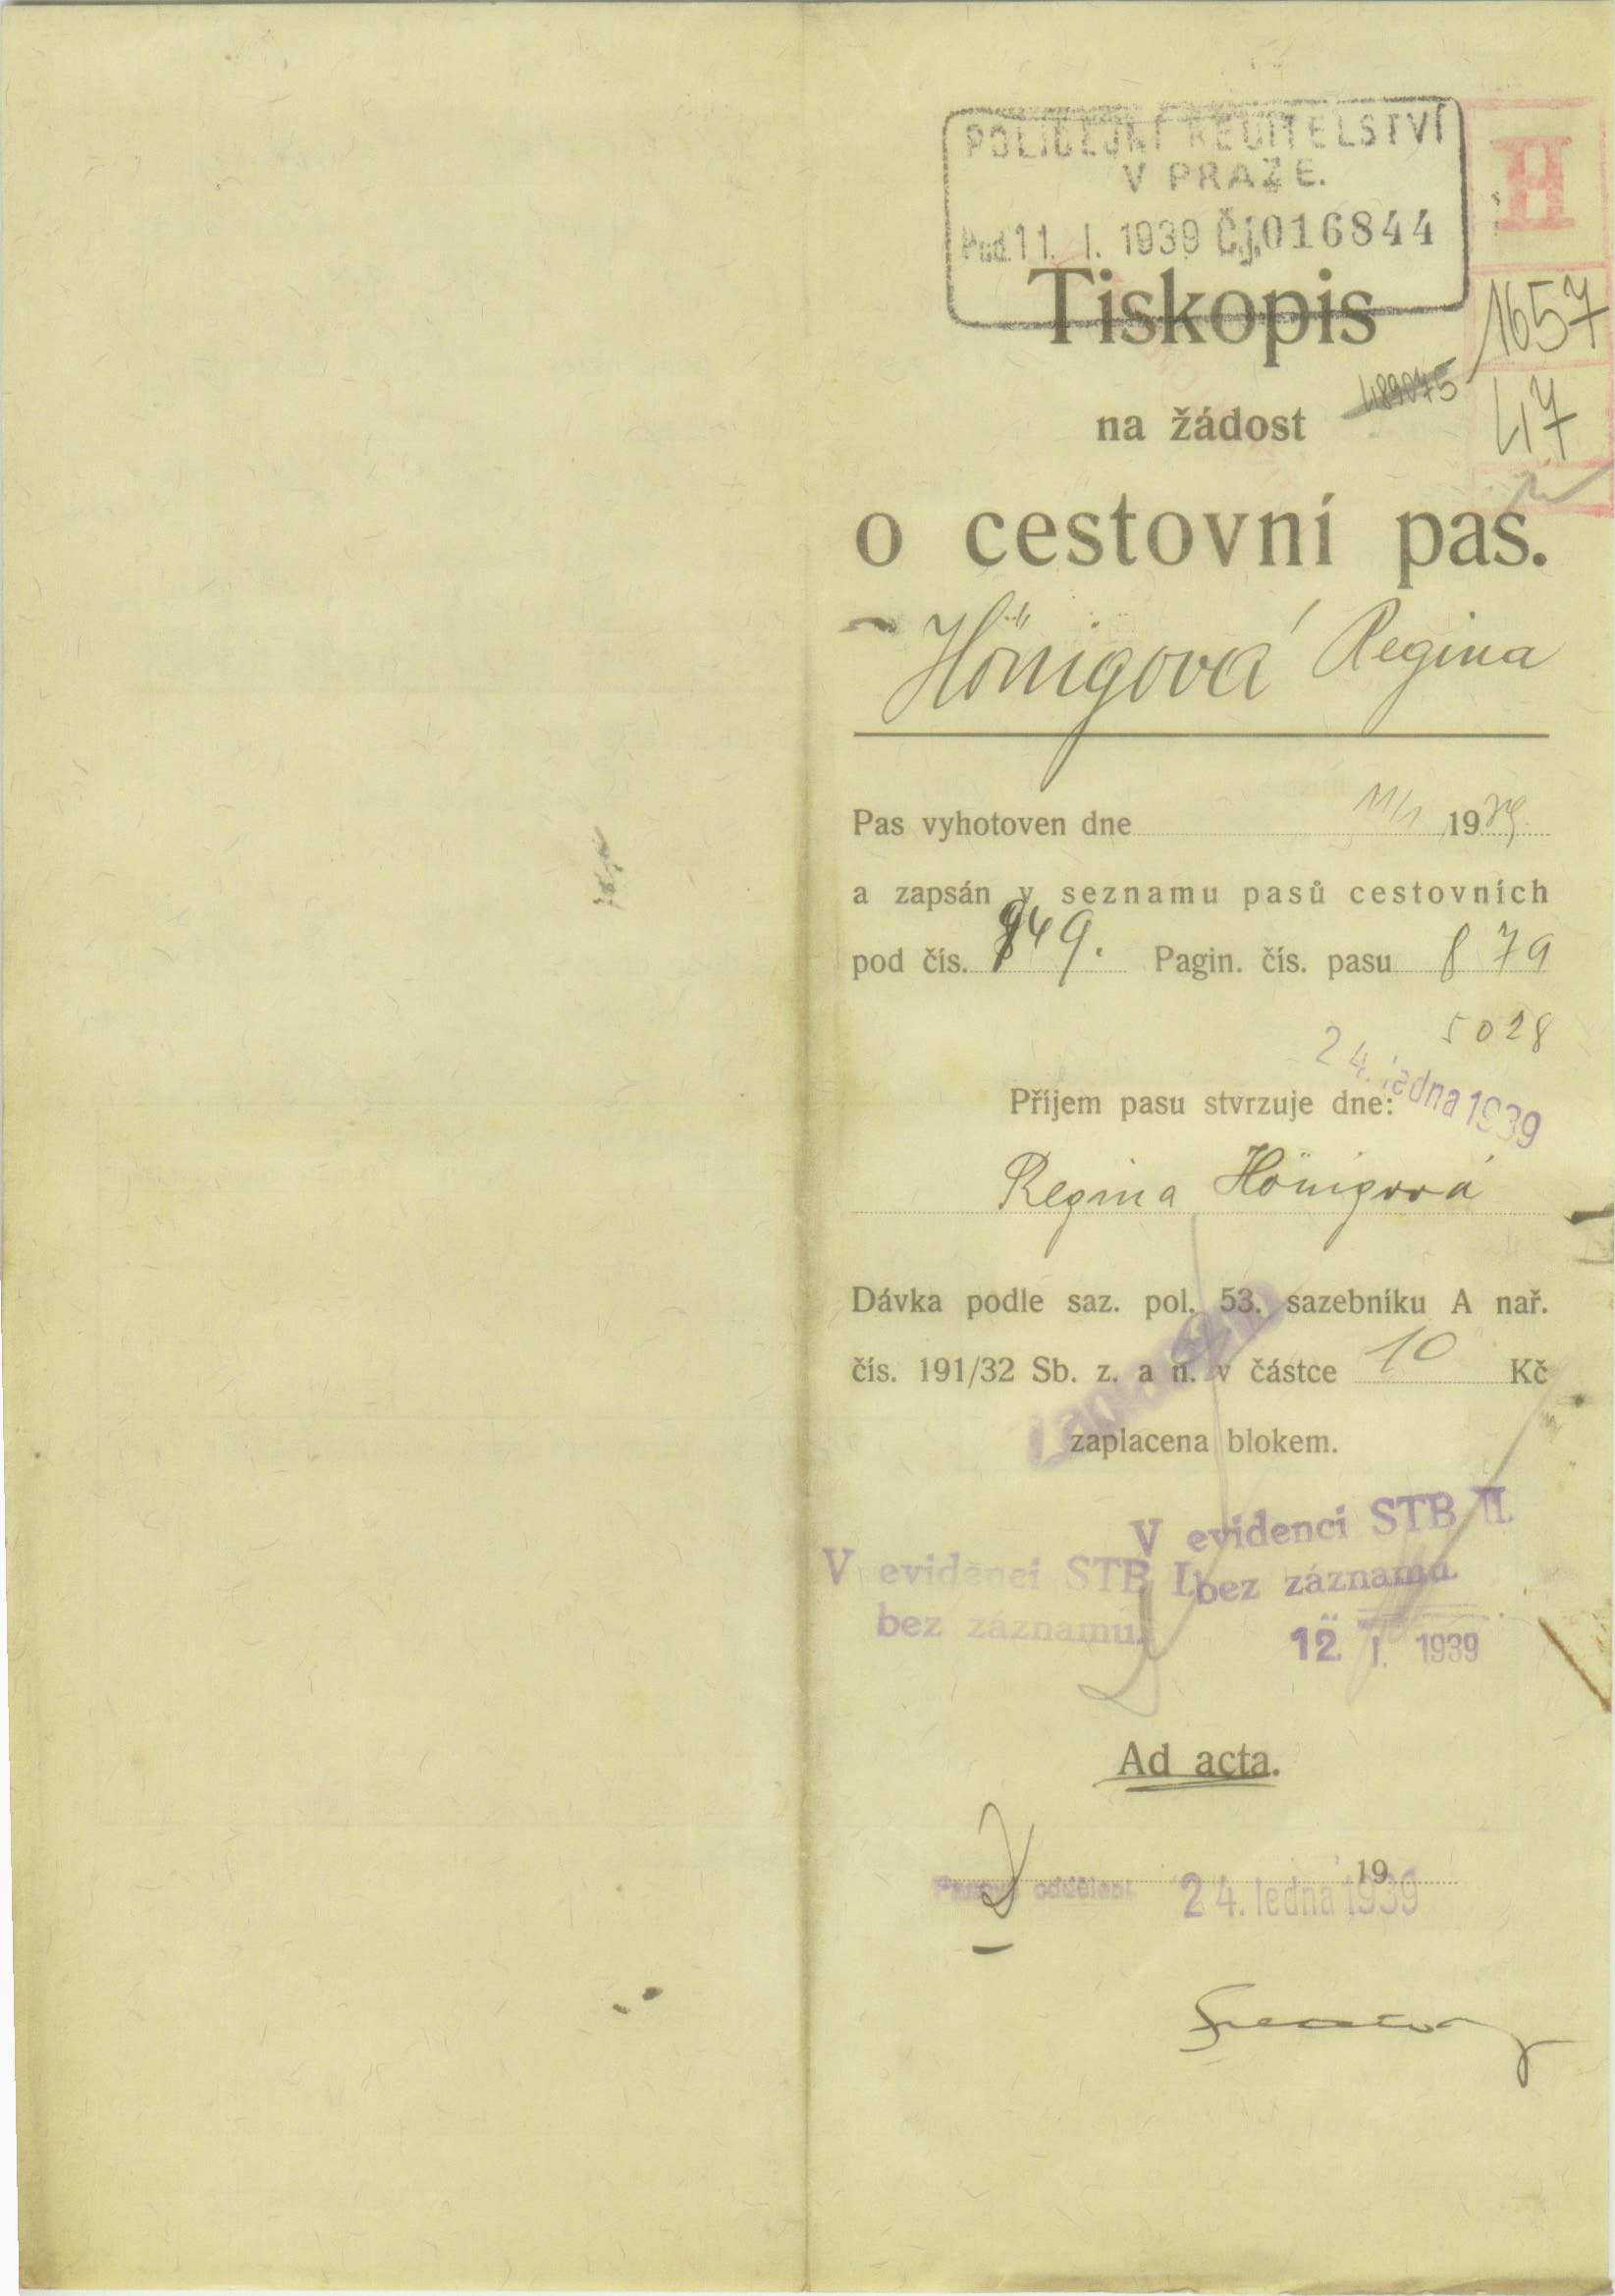 POLICEJNÍ ŘEDITELSTVÍ
V PRAZE.
Pod. 11. I. 1939 Č.j. 016844
H
1657
47
Tiskopis
na žádost
489075
o cestovní pas.
Hönigová Regina
Pas vyhotoven dne 11/1 1939
a zapsán v seznamu pasů cestovních
pod čís. 949. Pagin. čís. pasu 879
5028
24. ledna 1939
Příjem pasu stvrzuje dne:
Regina Hönigová
Dávka podle saz. pol. 53. sazebníku A nař.
čís. 191/32 Sb. z. a n. v částce 10 Kč
zaplacena blokem.
V evidenci STB II.
bez záznamu.
V evidenci STB I.
bez záznamu.
12. I. 1939
Ad acta.
19
Pasové oddělení. 24. ledna 1939